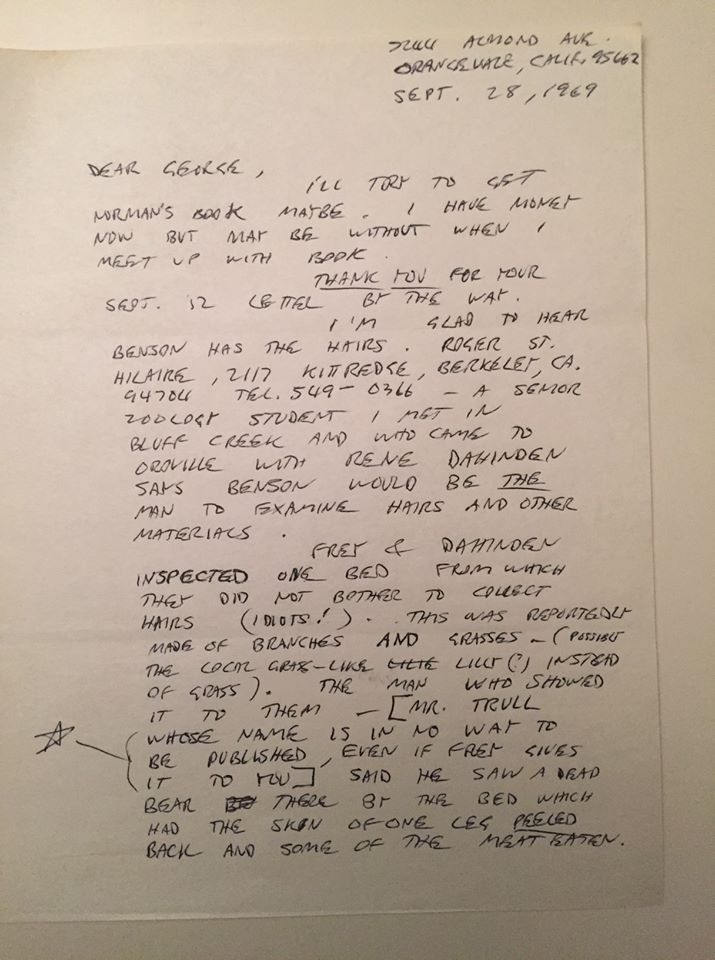 7244 ALMOND AVE.
ORANGEVALE, CALIF. 95662
SEPT. 28, 1969
DEAR GEORGE,
I'LL TRY TO GET
NORMAN'S BOOK MAYBE. I HAVE MONEY
NOW BUT MAY BE WITHOUT WHEN I
MEET UP WITH BOOK.
THANK YOU FOR YOUR
SEPT. 12 LETTER BY THE WAY.
I'M GLAD TO HEAR
BENSON HAS THE HAIRS. ROGER ST.
HILAIRE, 2117 KITTREDGE, BERKELEY, CA.
94704 TEL. 549-0366 - A SENIOR
ZOOLOGY STUDENT I MET IN
BLUFF CREEK AND WHO CAME TO
OROVILLE WITH RENE DAHINDEN
SAYS BENSON WOULD BE THE
MAN TO EXAMINE HAIRS AND OTHER
MATERIALS.
FREY & DAHINDEN
INSPECTED ONE BED FROM WHICH
THEY DID NOT BOTHER TO COLLECT
HAIRS (IDIOTS!). THIS WAS REPORTEDLY
MADE OF BRANCHES AND GRASSES - (POSSIBLY
THE LOCAL GRASS-LIKE LILLY(?) INSTEAD
OF GRASS). THE MAN WHO SHOWED
IT TO THEM - [MR. TRULL
WHOSE NAME IS IN NO WAY TO
BE PUBLISHED, EVEN IF FREY GIVES
IT TO YOU] SAID HE SAW A DEAD
BEAR THERE BY THE BED WHICH
HAD THE SKIN OF ONE LEG PEELED
BACK AND SOME OF THE MEAT EATEN.